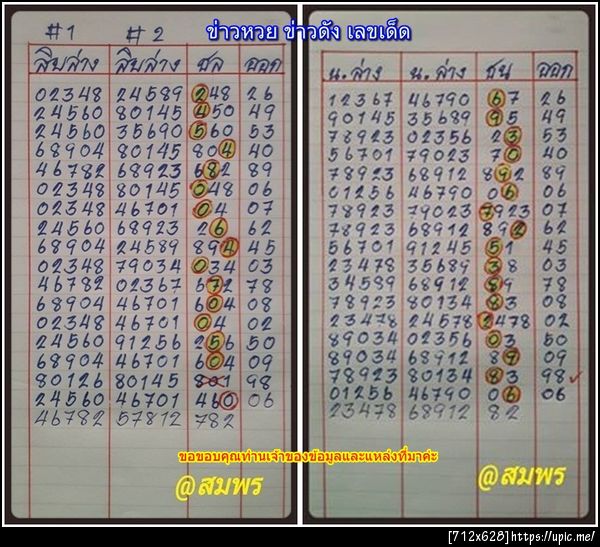 ข่าวหวย ข่าวดัง เลขเด็ด
#1 #2
สิบล่าง สิบล่าง ชล ออก
02348 24589 248 26
24560 80145 450 49
24560 35690 560 53
68904 80145 804 40
46782 68923 682 89
02348 80145 048 06
02348 46701 04 07
24560 68923 26 62
68904 24589 894 45
02348 79034 034 03
46782 02367 672 78
68904 46701 604 08
02348 46701 04 02
24560 91256 256 50
68904 46701 604 09
80126 80145 801 98
24560 46701 460 06
46782 57812 782
น.ล่าง น.ล่าง ชน ออก
12367 46790 67 26
90145 35689 95 49
78923 02356 23 53
56701 79023 70 40
78923 68912 892 89
01256 46790 06 06
78923 79023 7923 07
78923 68912 892 62
56701 91245 51 45
23478 35689 38 03
34589 68912 89 78
78923 80134 83 08
23478 24578 2478 02
89034 02356 03 50
89034 68912 89 09
78923 80134 83 98 ✓
01256 46790 06 06
23478 68912 82
ขอขอบคุณท่านเจ้าของข้อมูลและแหล่งที่มาค่ะ
@สมพร
@สมพร
[712x628]https://upic.me/